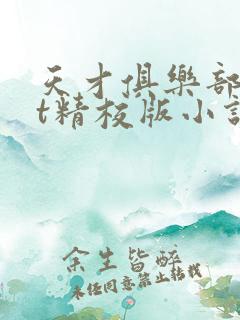 天才俱樂部
t精校版小說
余生皆醉
未经同意禁止转载